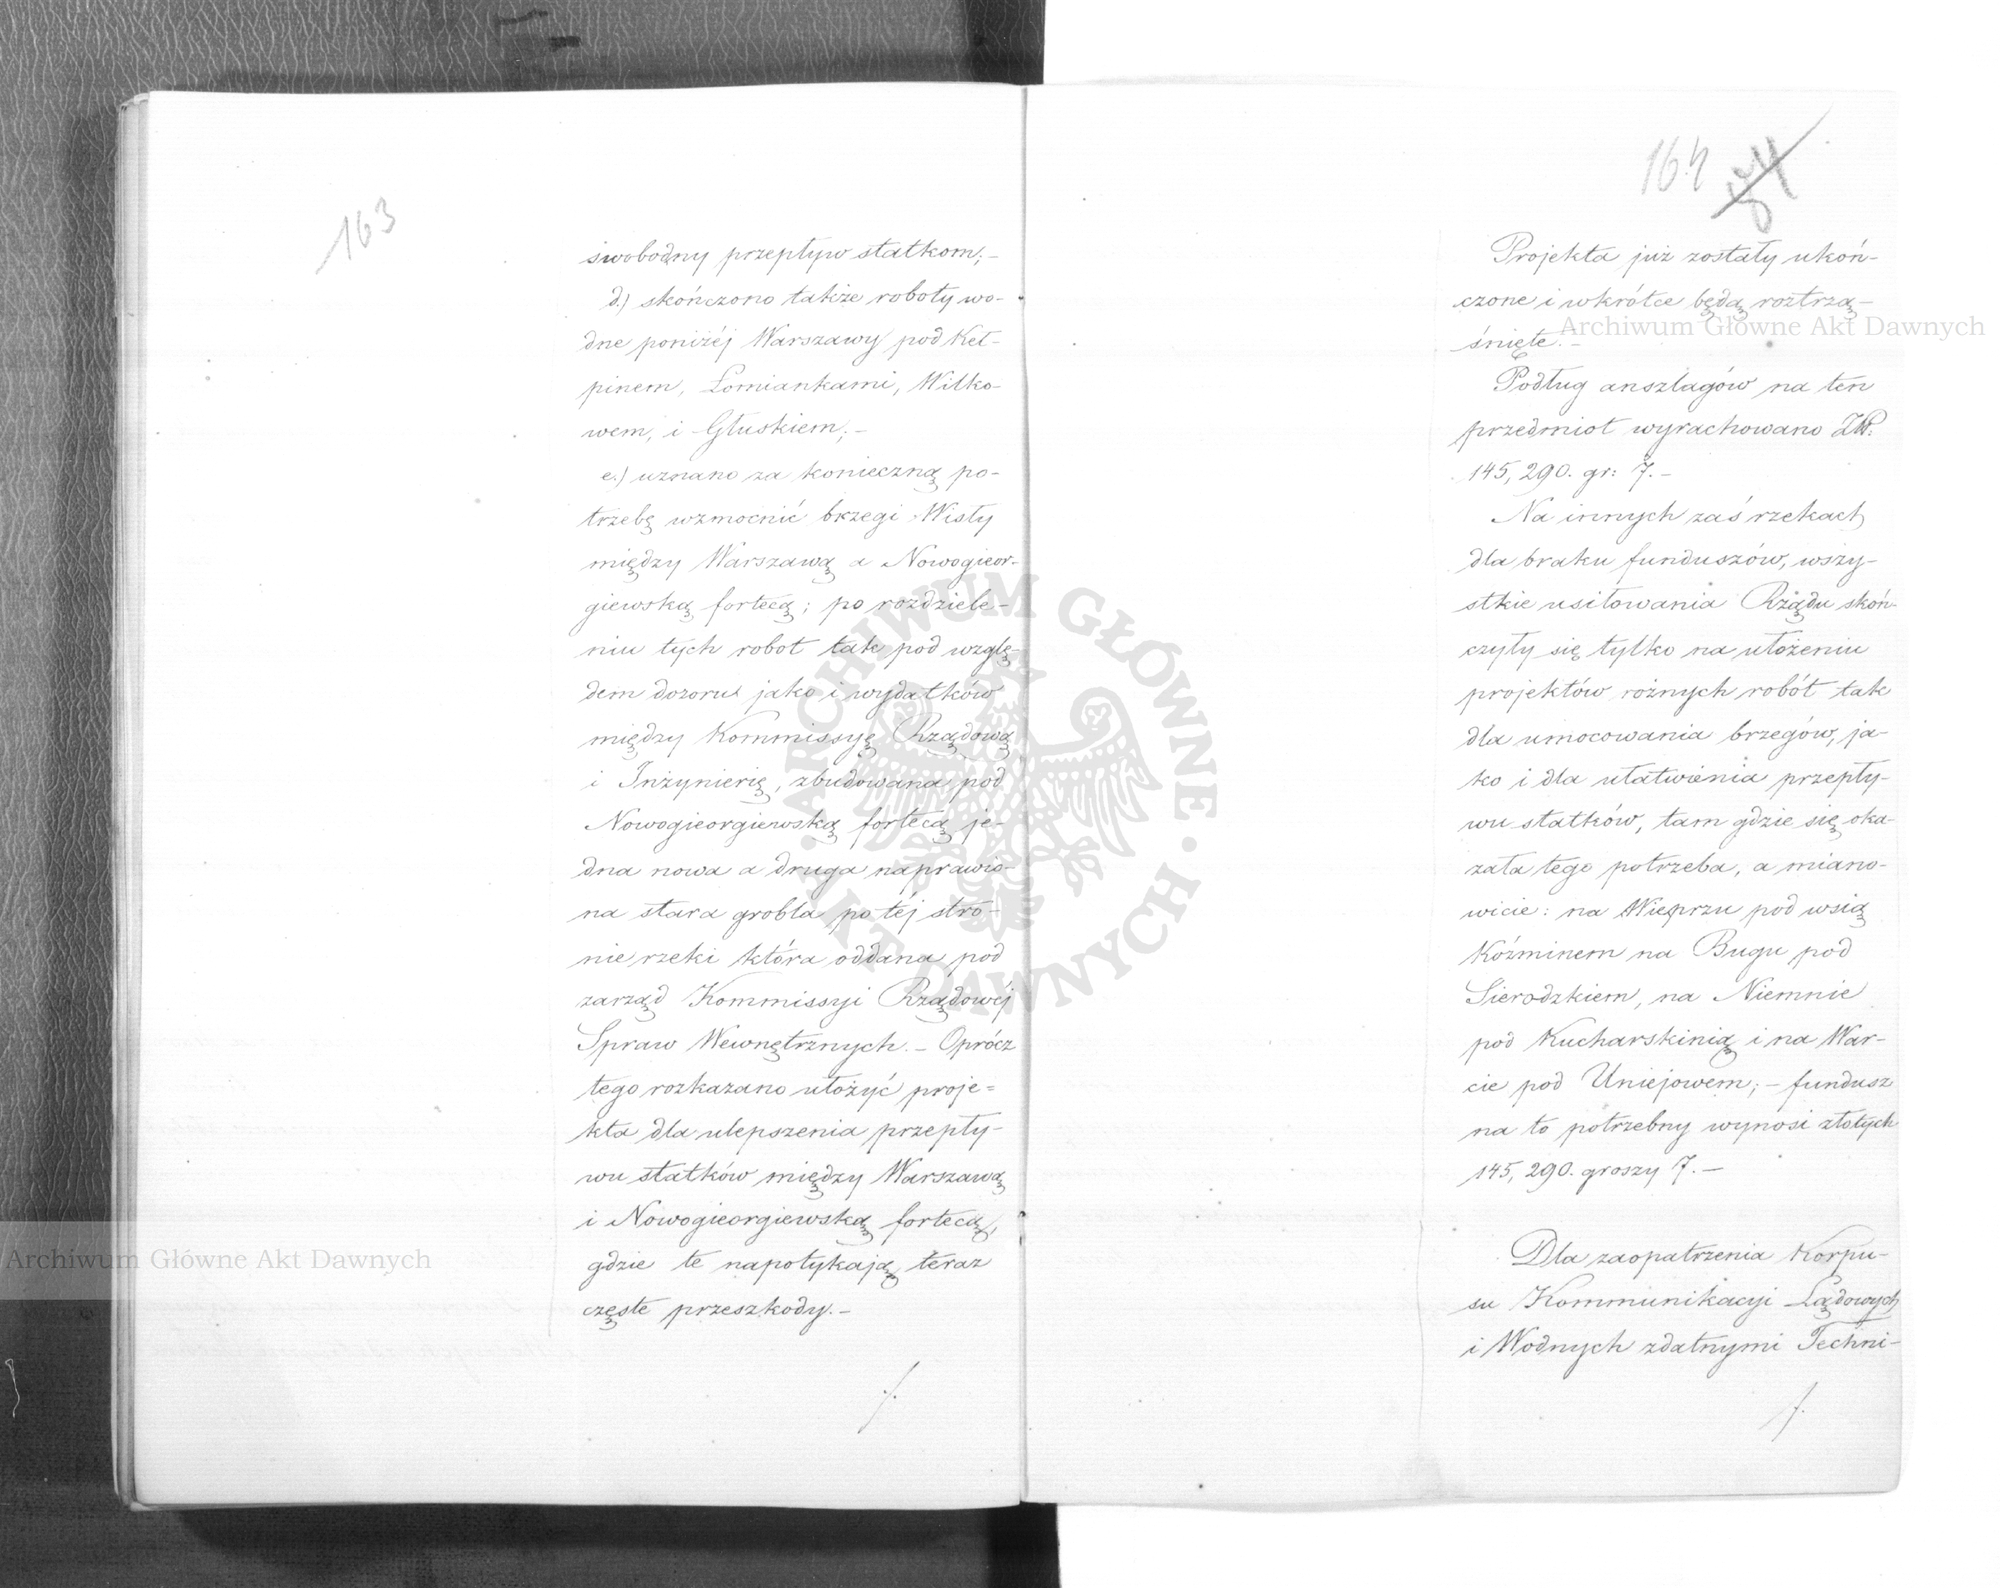 163
swobodny przepływ statkom; –
d.) skończono także roboty wo-
dne poniżéj Warszawy pod Keł-
pinem, Łomiankami, Wilko-
wem, i Głuskiem; –
e.) uznano za konieczną po-
trzebę wzmocnić brzegi Wisły
między Warszawą a Nowogieor-
giewską fortecą; po rozdziele-
niu tych robot tak pod wzglę-
dem dozoru jako i wydatków
między Kommissyę Rządową
i Inżynierię, zbudowana pod
Nowogieorgiewską fortecą je-
dna nowa a druga naprawio-
na stara grobla po téj stro-
nie rzeki która oddana pod
zarząd Kommissyi Rządowéj
Spraw Wewnętrznych. – Oprócz
tego rozkazano ułożyć proje=
kta dla ulepszenia przepły-
wu statków między Warszawą
i Nowogieorgiewską fortecą,
gdzie te napotykają teraz
częste przeszkody. –
/.
164 84
Projekta już zostały ukoń-
czone i wkrótce będą roztrzą-
śnięte. –
Podług anszlagów na ten
przedmiot wyrachowano Złp:
145,290. gr: 7. –
Na innych zaś rzekach
dla braku funduszów, wszy-
stkie usiłowania Rządu skoń-
czyły się tylko na ułożeniu
projektów rożnych robót tak
dla umocowania brzegów, ja-
ko i dla ułatwienia przepły-
wu statków, tam gdzie się oka-
zała tego potrzeba, a miano-
wicie: na Wieprzu pod wsią
Koźminem na Bugu pod
Sierodzkiem, na Niemnie
pod Kucharskinią i na War-
cie pod Uniejowem; – fundusz
na to potrzebny wynosi złotych
145,290. groszy 7. –
Dla zaopatrzenia Korpu-
su Kommunikacyi Lądowych
i Wodnych zdatnymi Techni-
/.
Archiwum Główne Akt Dawnych
Archiwum Główne Akt Dawnych
ARCHIWUM GŁÓWNE AKT DAWNYCH